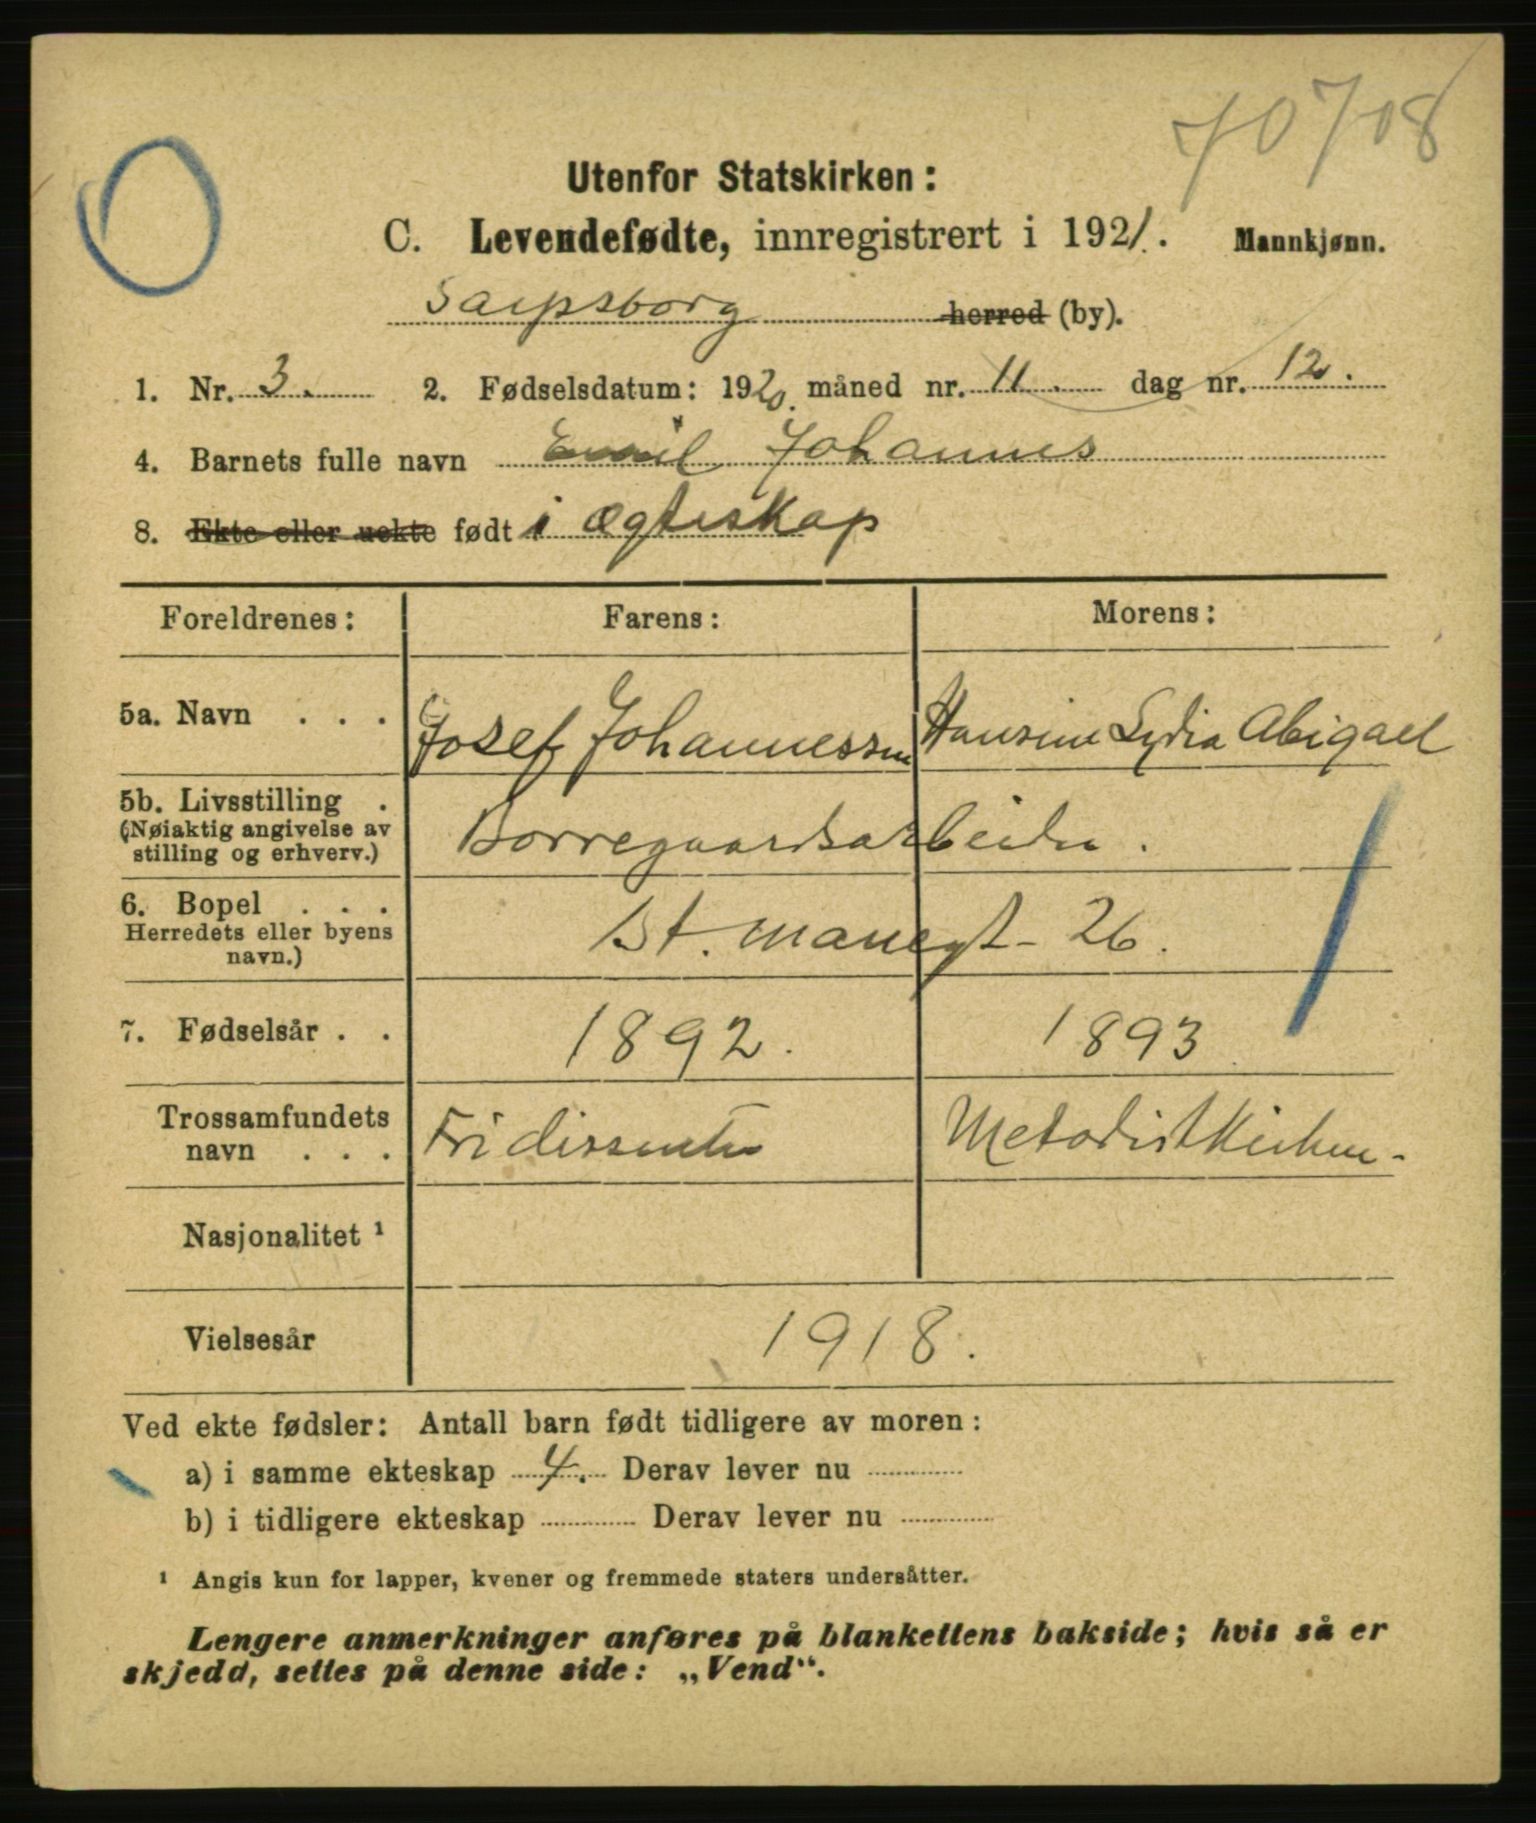 70708
Utenfor Statskirken:
C. Levendefødte, innregistrert i 1921. Mannkjønn.
Sarpsborg herred (by).
1. Nr. 3. 2. Fødselsdatum: 1920. måned nr. 11. dag nr. 12.
4. Barnets fulle navn Emil Johannes
8. Ekte eller uekte født i ægteskap
Foreldrenes: Farens: Morens:
5a. Navn . . . Josef Johannessen Hansine Lydia Abigael
5b. Livsstilling . Borregaardsarbeider.
(Nøiaktig angivelse av
stilling og erhverv.)
6. Bopel . . . St. mariegt- 26.
Herredets eller byens
navn.)
7. Fødselsår . . 1892. 1893
Trossamfundets
navn . . . Fri dissenter Metodistkirken-
Nasjonalitet ¹
Vielsesår 1918.
Ved ekte fødsler: Antall barn født tidligere av moren:
a) i samme ekteskap 4. Derav lever nu
b) i tidligere ekteskap Derav lever nu
¹ Angis kun for lapper, kvener og fremmede staters undersåtter.
Lengere anmerkninger anføres på blankettens bakside; hvis så er
skjedd, settes på denne side: „Vend“.